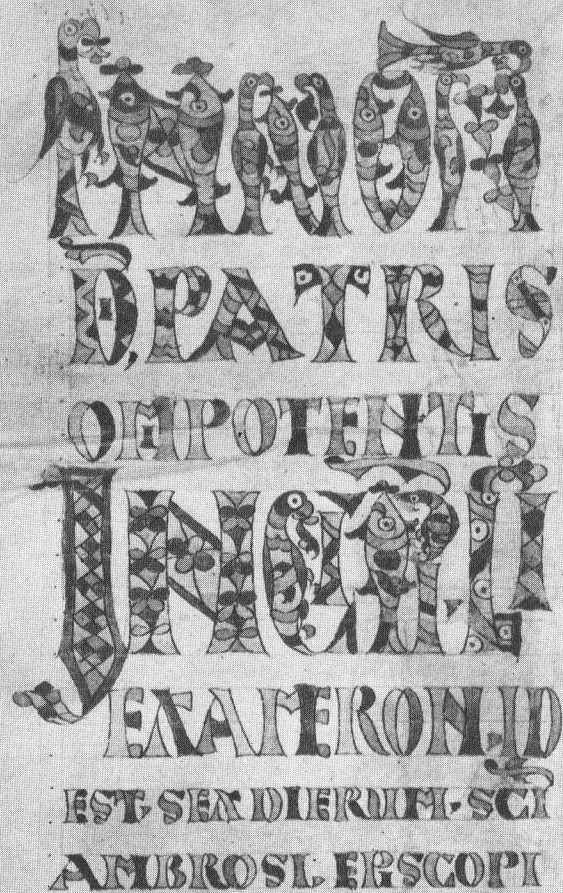 DI, PATRIS
OMIPOTENTIS
EXAMERON, ID
EST, SEX DIERUM · SC̄I
AMBROSI, EPISCOPI